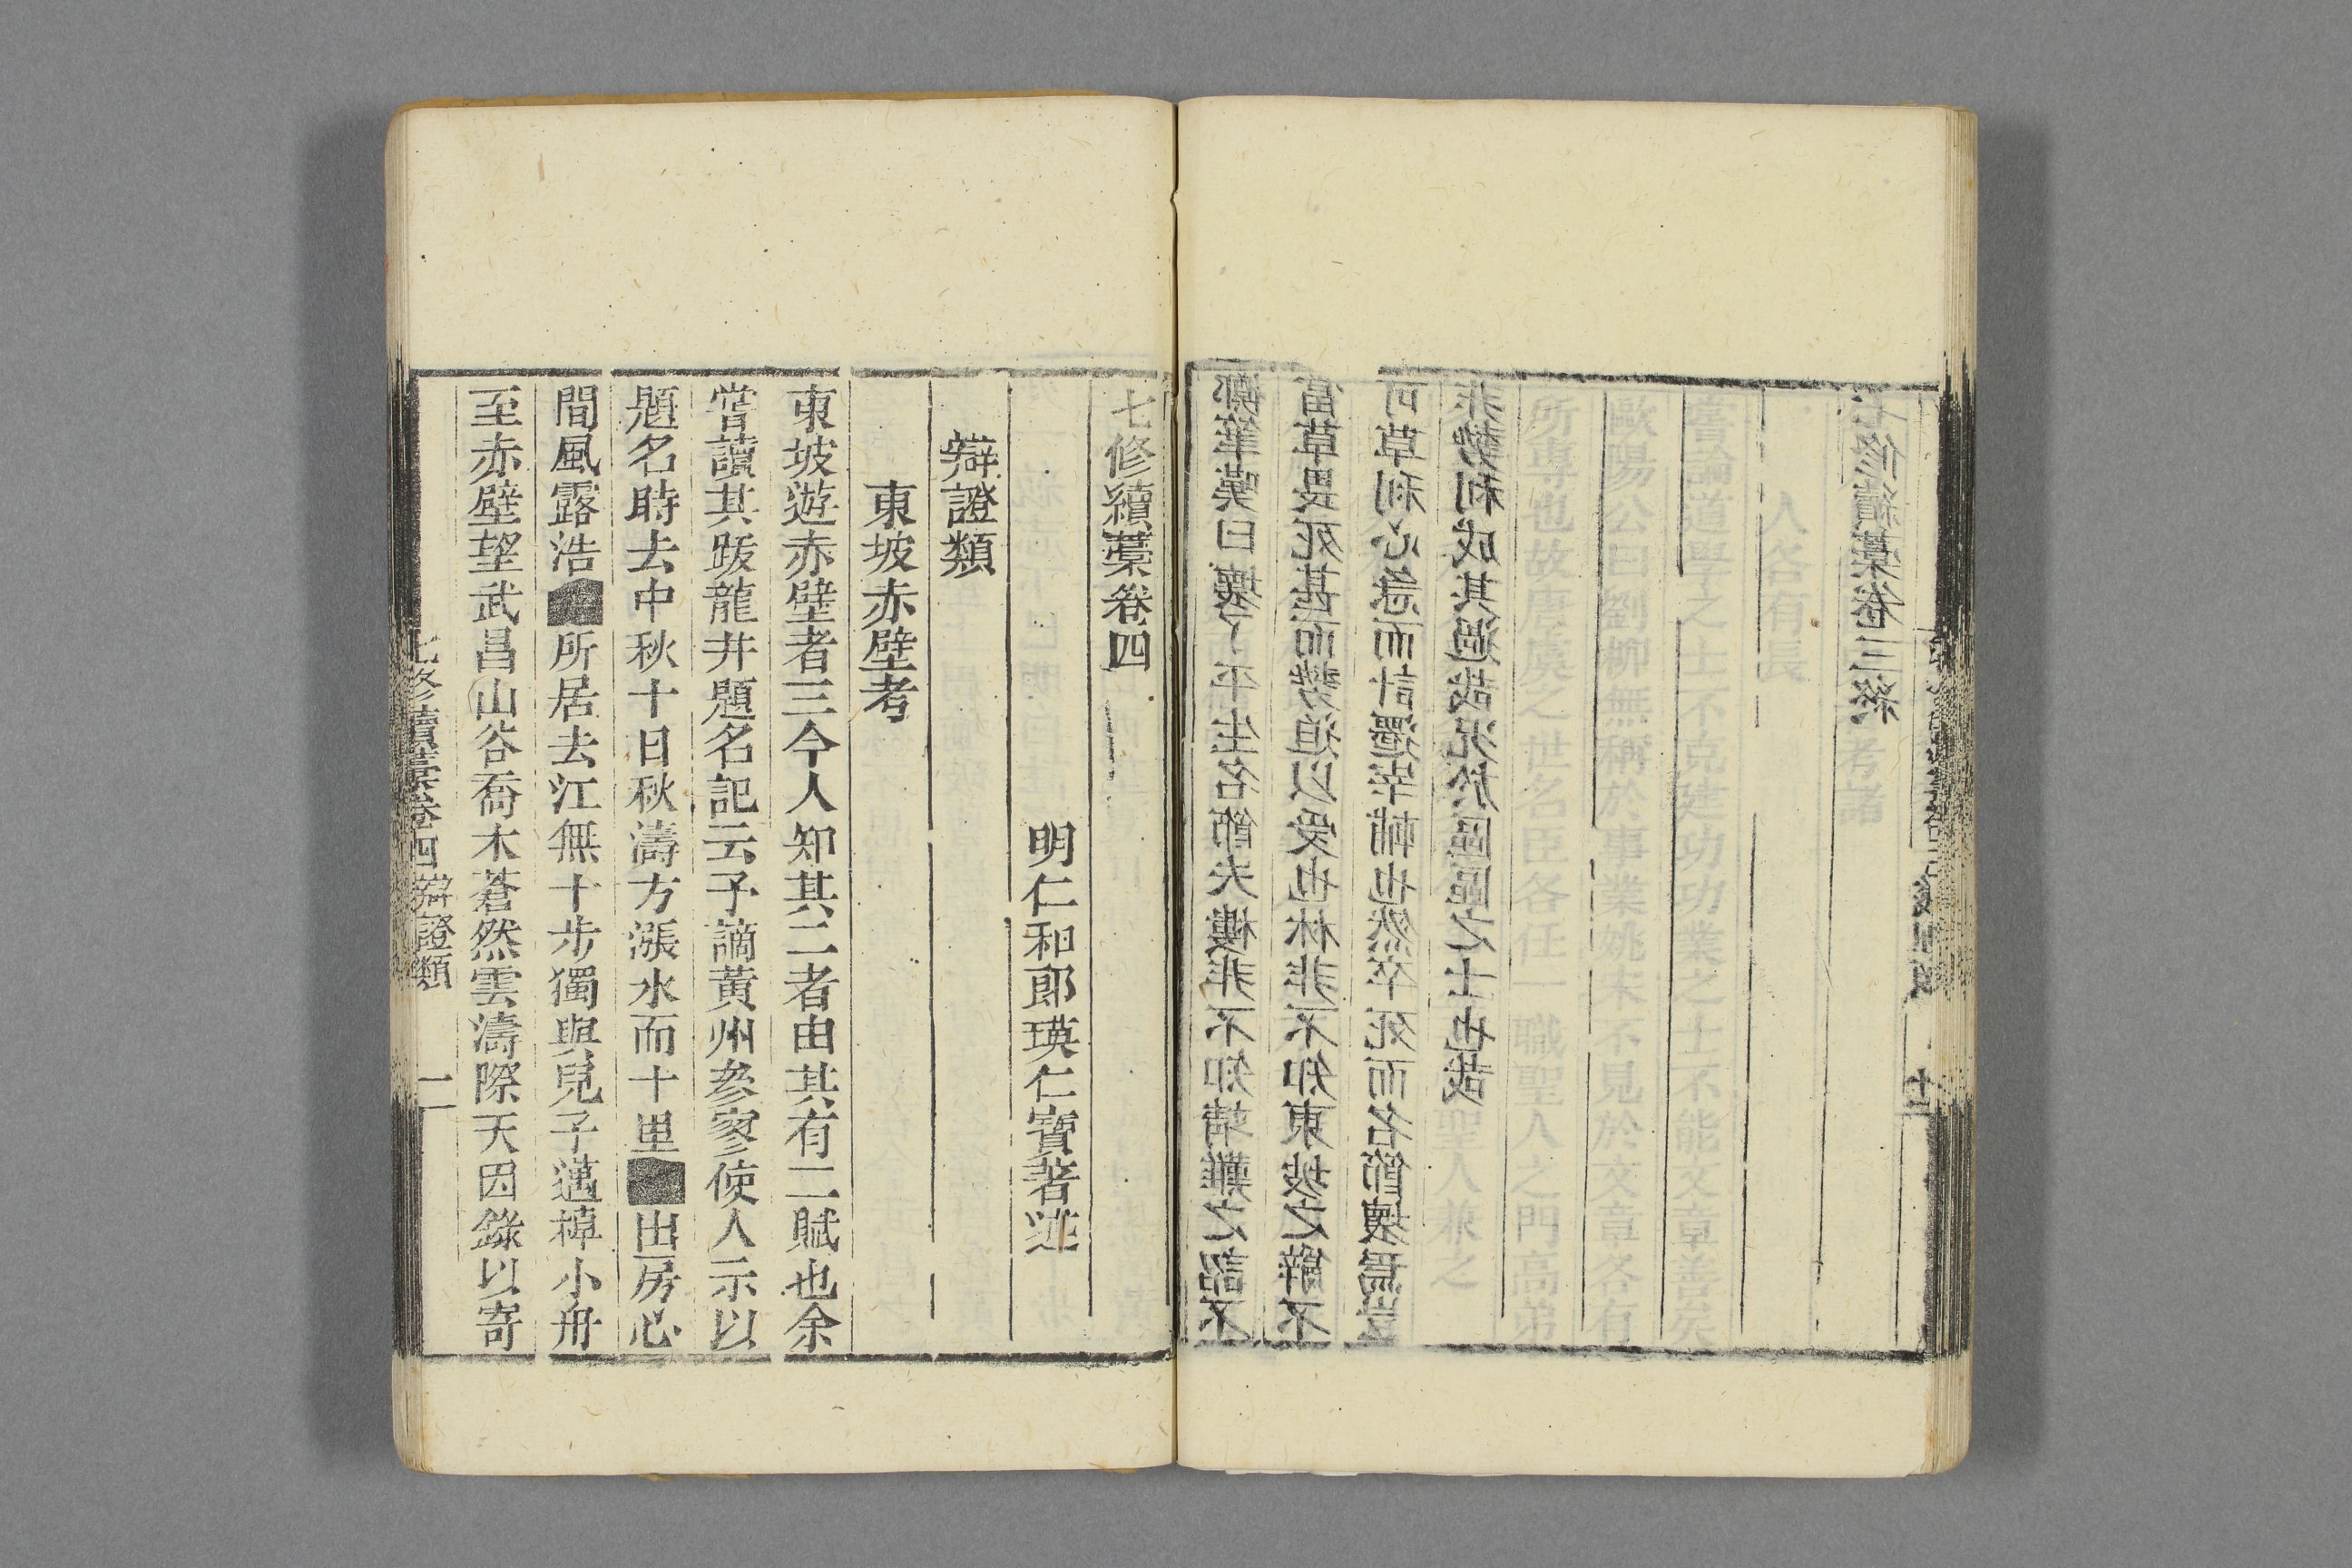 擲筆嘆曰壞了平生名節夫樓非不知靖難之詔不
當草畏死甚而勢迫以受也林非不知東坡之辭不
可草利心急而計還宰輔也然卒死而名節壞焉豈
非勢利成其過哉況於區區之士也哉
七修續藁卷三終
人各有長
嘗論道學之士不克建功功業之士不能文章善矣
歐陽公曰劉柳無稱於事業姚宋不見於文章各有
所專也故唐虞之世名臣各任一職聖人之門高弟
聖人兼之
七修續藁卷四
明仁和郎瑛仁寶著述
辯證類
東坡赤壁考
東坡遊赤壁者三今人知其二者由其有二賦也余
嘗讀其跋龍井題名記云予謫黃州參寥使人示以
題名時去中秋十日秋濤方漲水面十里■出房心
間風露浩■所居去江無十步獨與兒子邁棹小舟
至赤壁望武昌山谷喬木蒼然雲濤際天因錄以寄
七修續藁卷四 辯證類 一